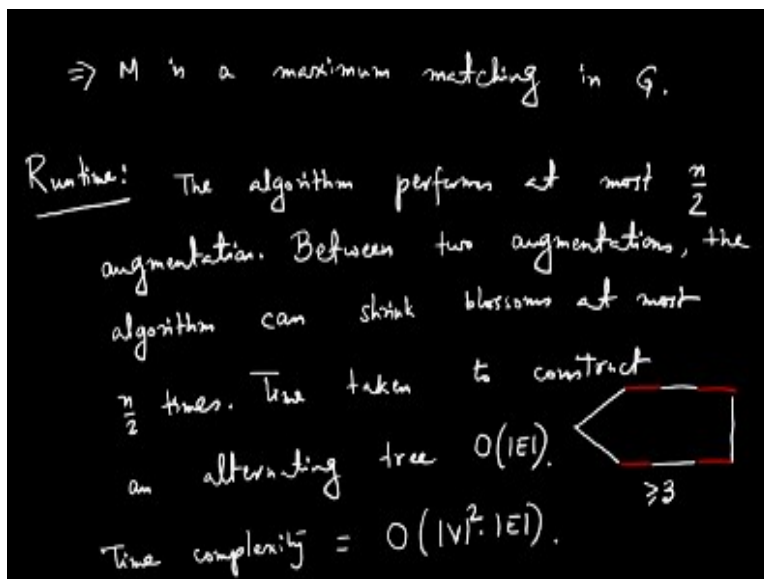 ⇒ M is a maximum matching in G.
Runtime: The algorithm performs at most n/2
augmentation. Between two augmentations, the
algorithm can shrink blossoms at most
n/2 times. Time taken to construct
an alternating tree O(|E|).
≥3
Time complexity = O(|V|². |E|).